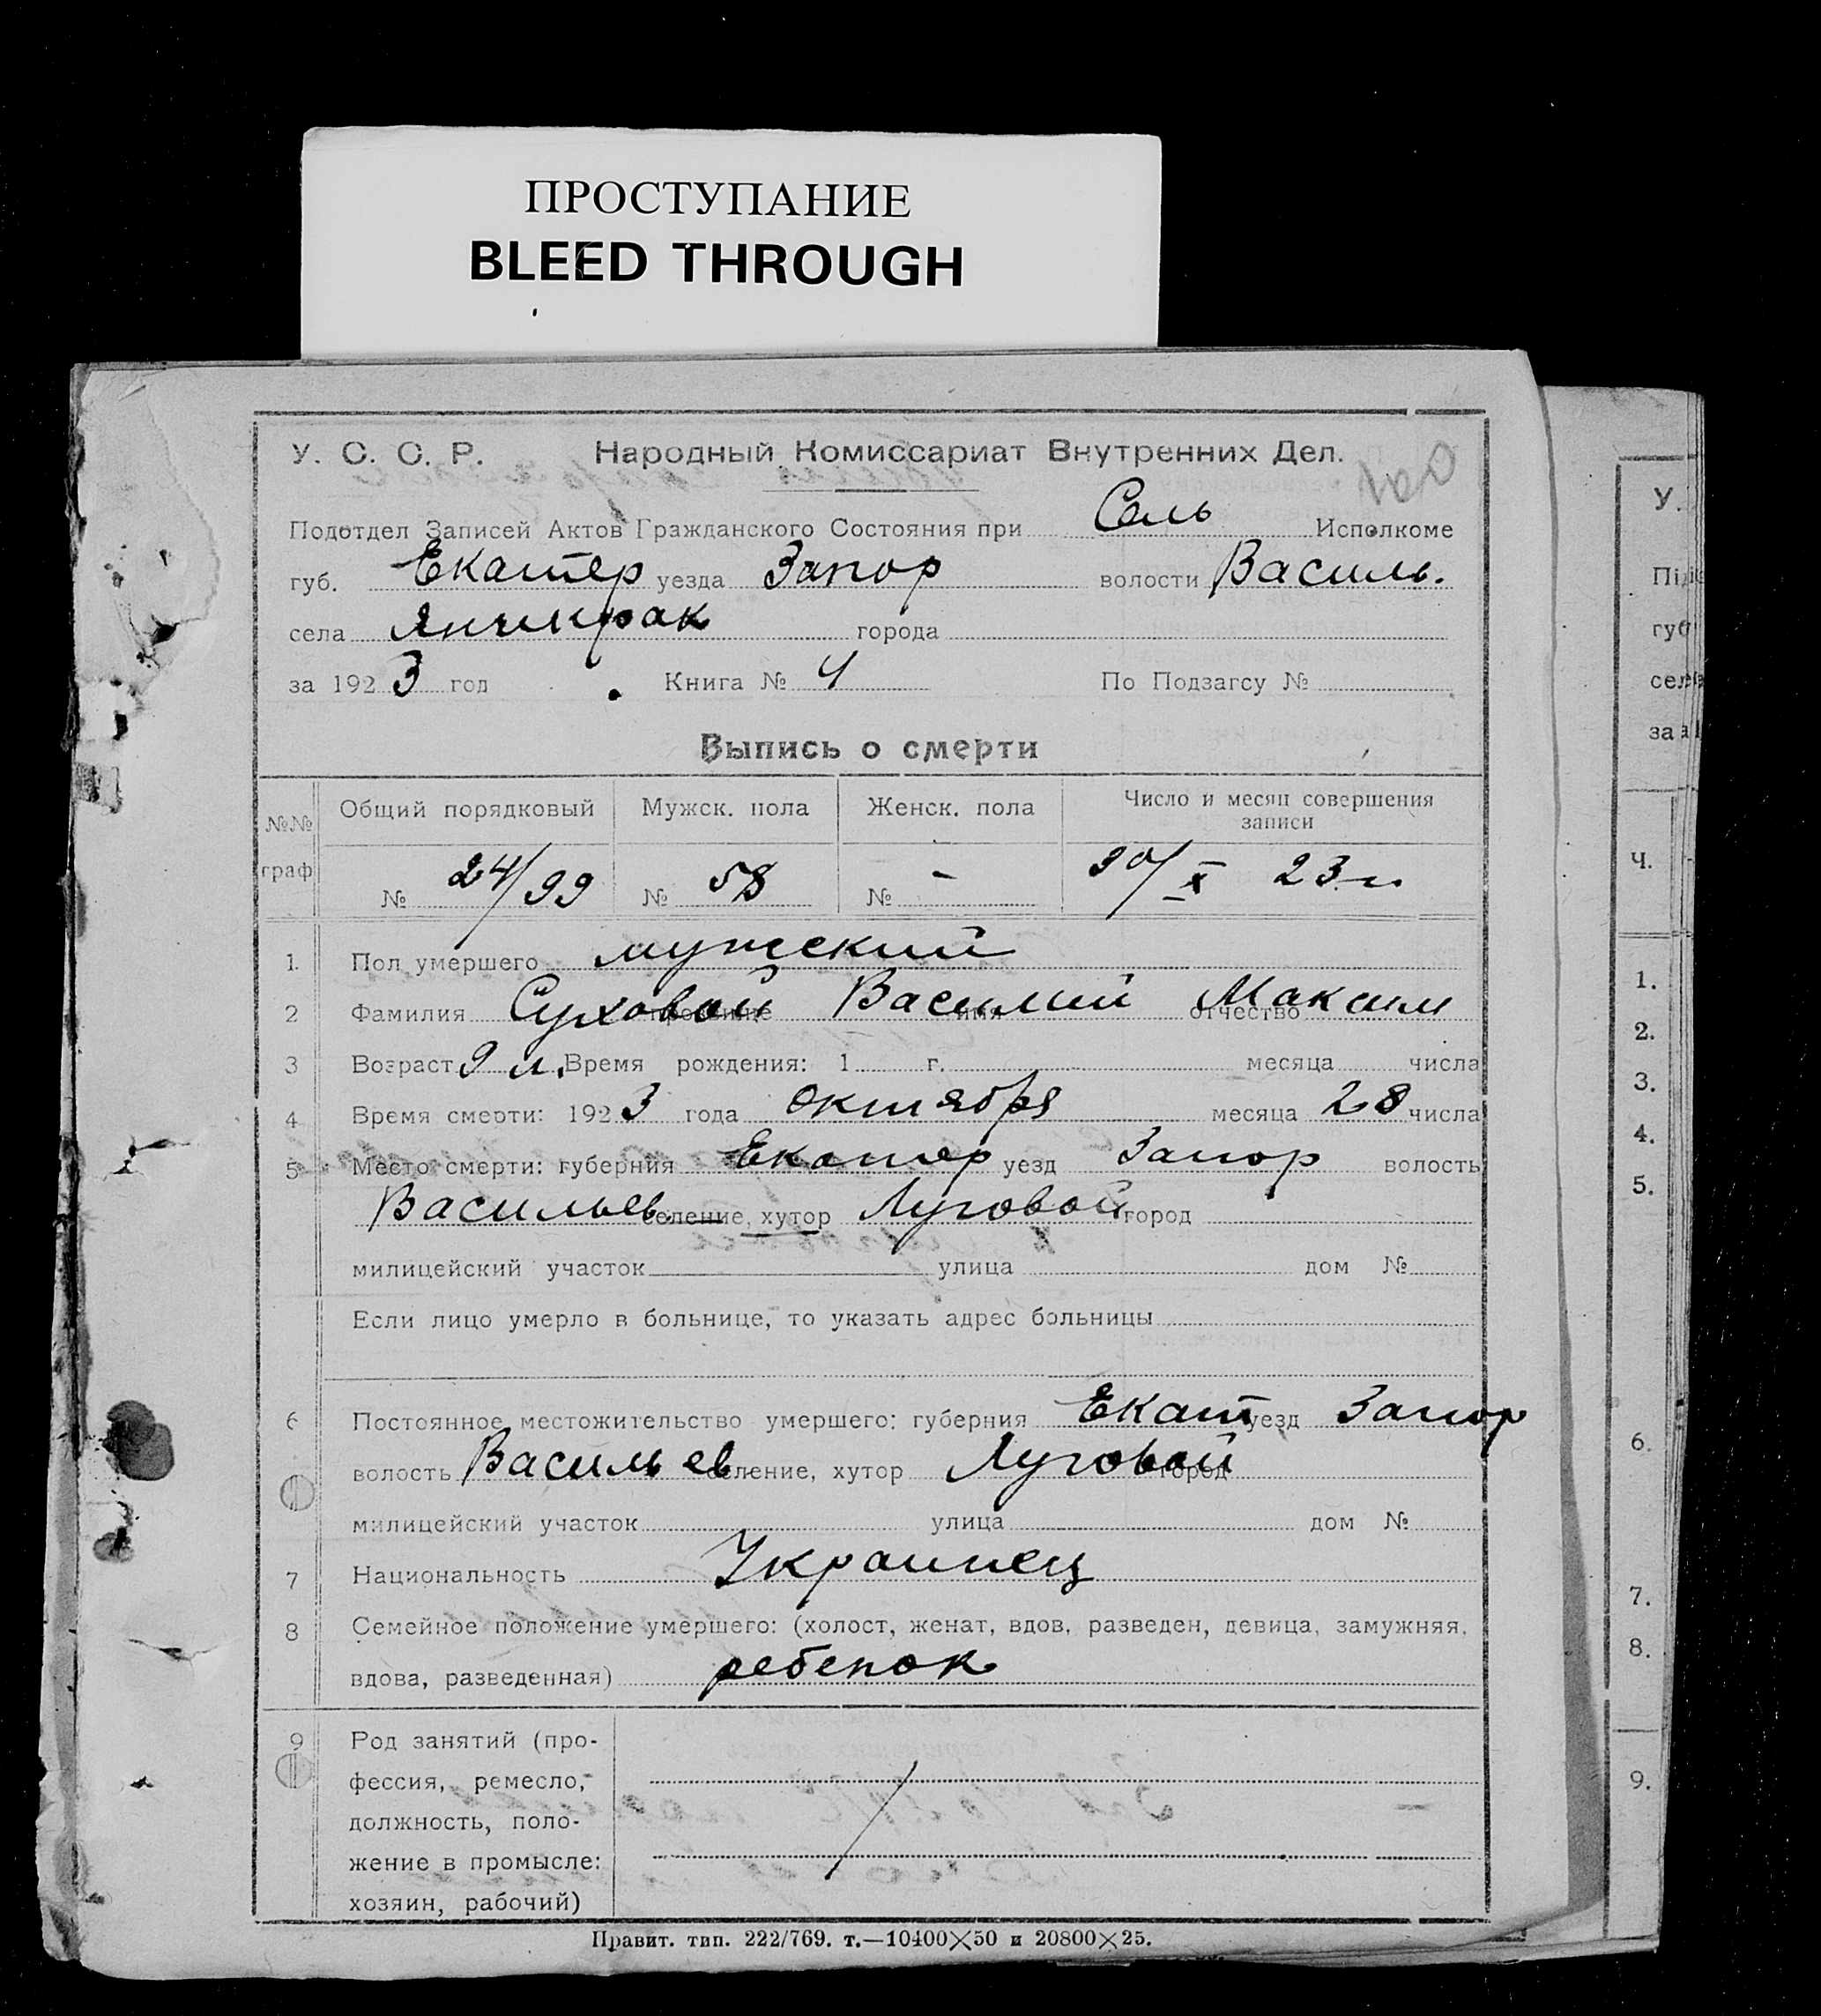 ПРОСТУПАНИЕ
BLEED THROUGH
У. С. С. Р. Народный Комиссариат Внутренних Дел.
Подотдел Записей Актов Гражданского Состояния при Сель Исполкоме
губ. Екатер уезда Запор волости Василь.
села Янчикрак города
за 1923 год Книга № 4 По Подзагсу №
Выпись о смерти
№№ граф Общий порядковый Мужск. пола Женск. пола Число и месяц совершения записи
№ 24/99 № 58 № - 30/X 23 г.
1. Пол умершего мужский
2 Фамилия Суховой прозвище Василий имя отчество Максим
3 Возраст 9 л. Время рождения: 1 г. месяца числа
4 Время смерти: 1923 года октября месяца 28 числа
5 Место смерти: губерния Екатер уезд Запор волость
Васильев. селение, хутор Луговой город
милицейский участок улица дом №
Если лицо умерло в больнице, то указать адрес больницы
6 Постоянное местожительство умершего: губерния Екат уезд Запор
волость Васильев селение, хутор Луговой город
милицейский участок улица дом №
7 Национальность Украинец
8 Семейное положение умершего: (холост, женат, вдов, разведен, девица, замужняя,
вдова, разведенная) ребенок
9 Род занятий (про-
фессия, ремесло,
должность, поло-
жение в промысле:
хозяин, рабочий)
Правит. тип. 222/769. т.—10400×50 и 20800×25.
У.
Під
губ
села
за 1
Ч.
1.
2.
3.
4.
5.
6.
7.
8.
9.